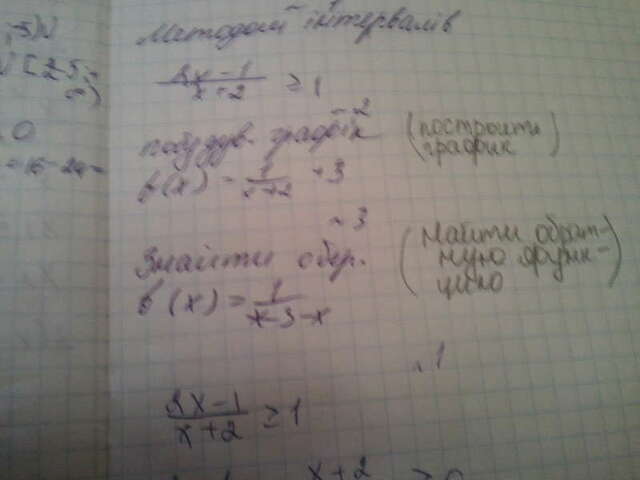 Методом інтервалів
2x-1
x+2 ≥ 1
~2
побудув. графік (построить график)
f(x) = 1/x+2 + 3
~3
Знайти обер. (Найти обрат-
ную функ-
цию)
f(x) = 1/x-3-x
1
2x-1
x+2 ≥ 1
x+2 ≥ 0